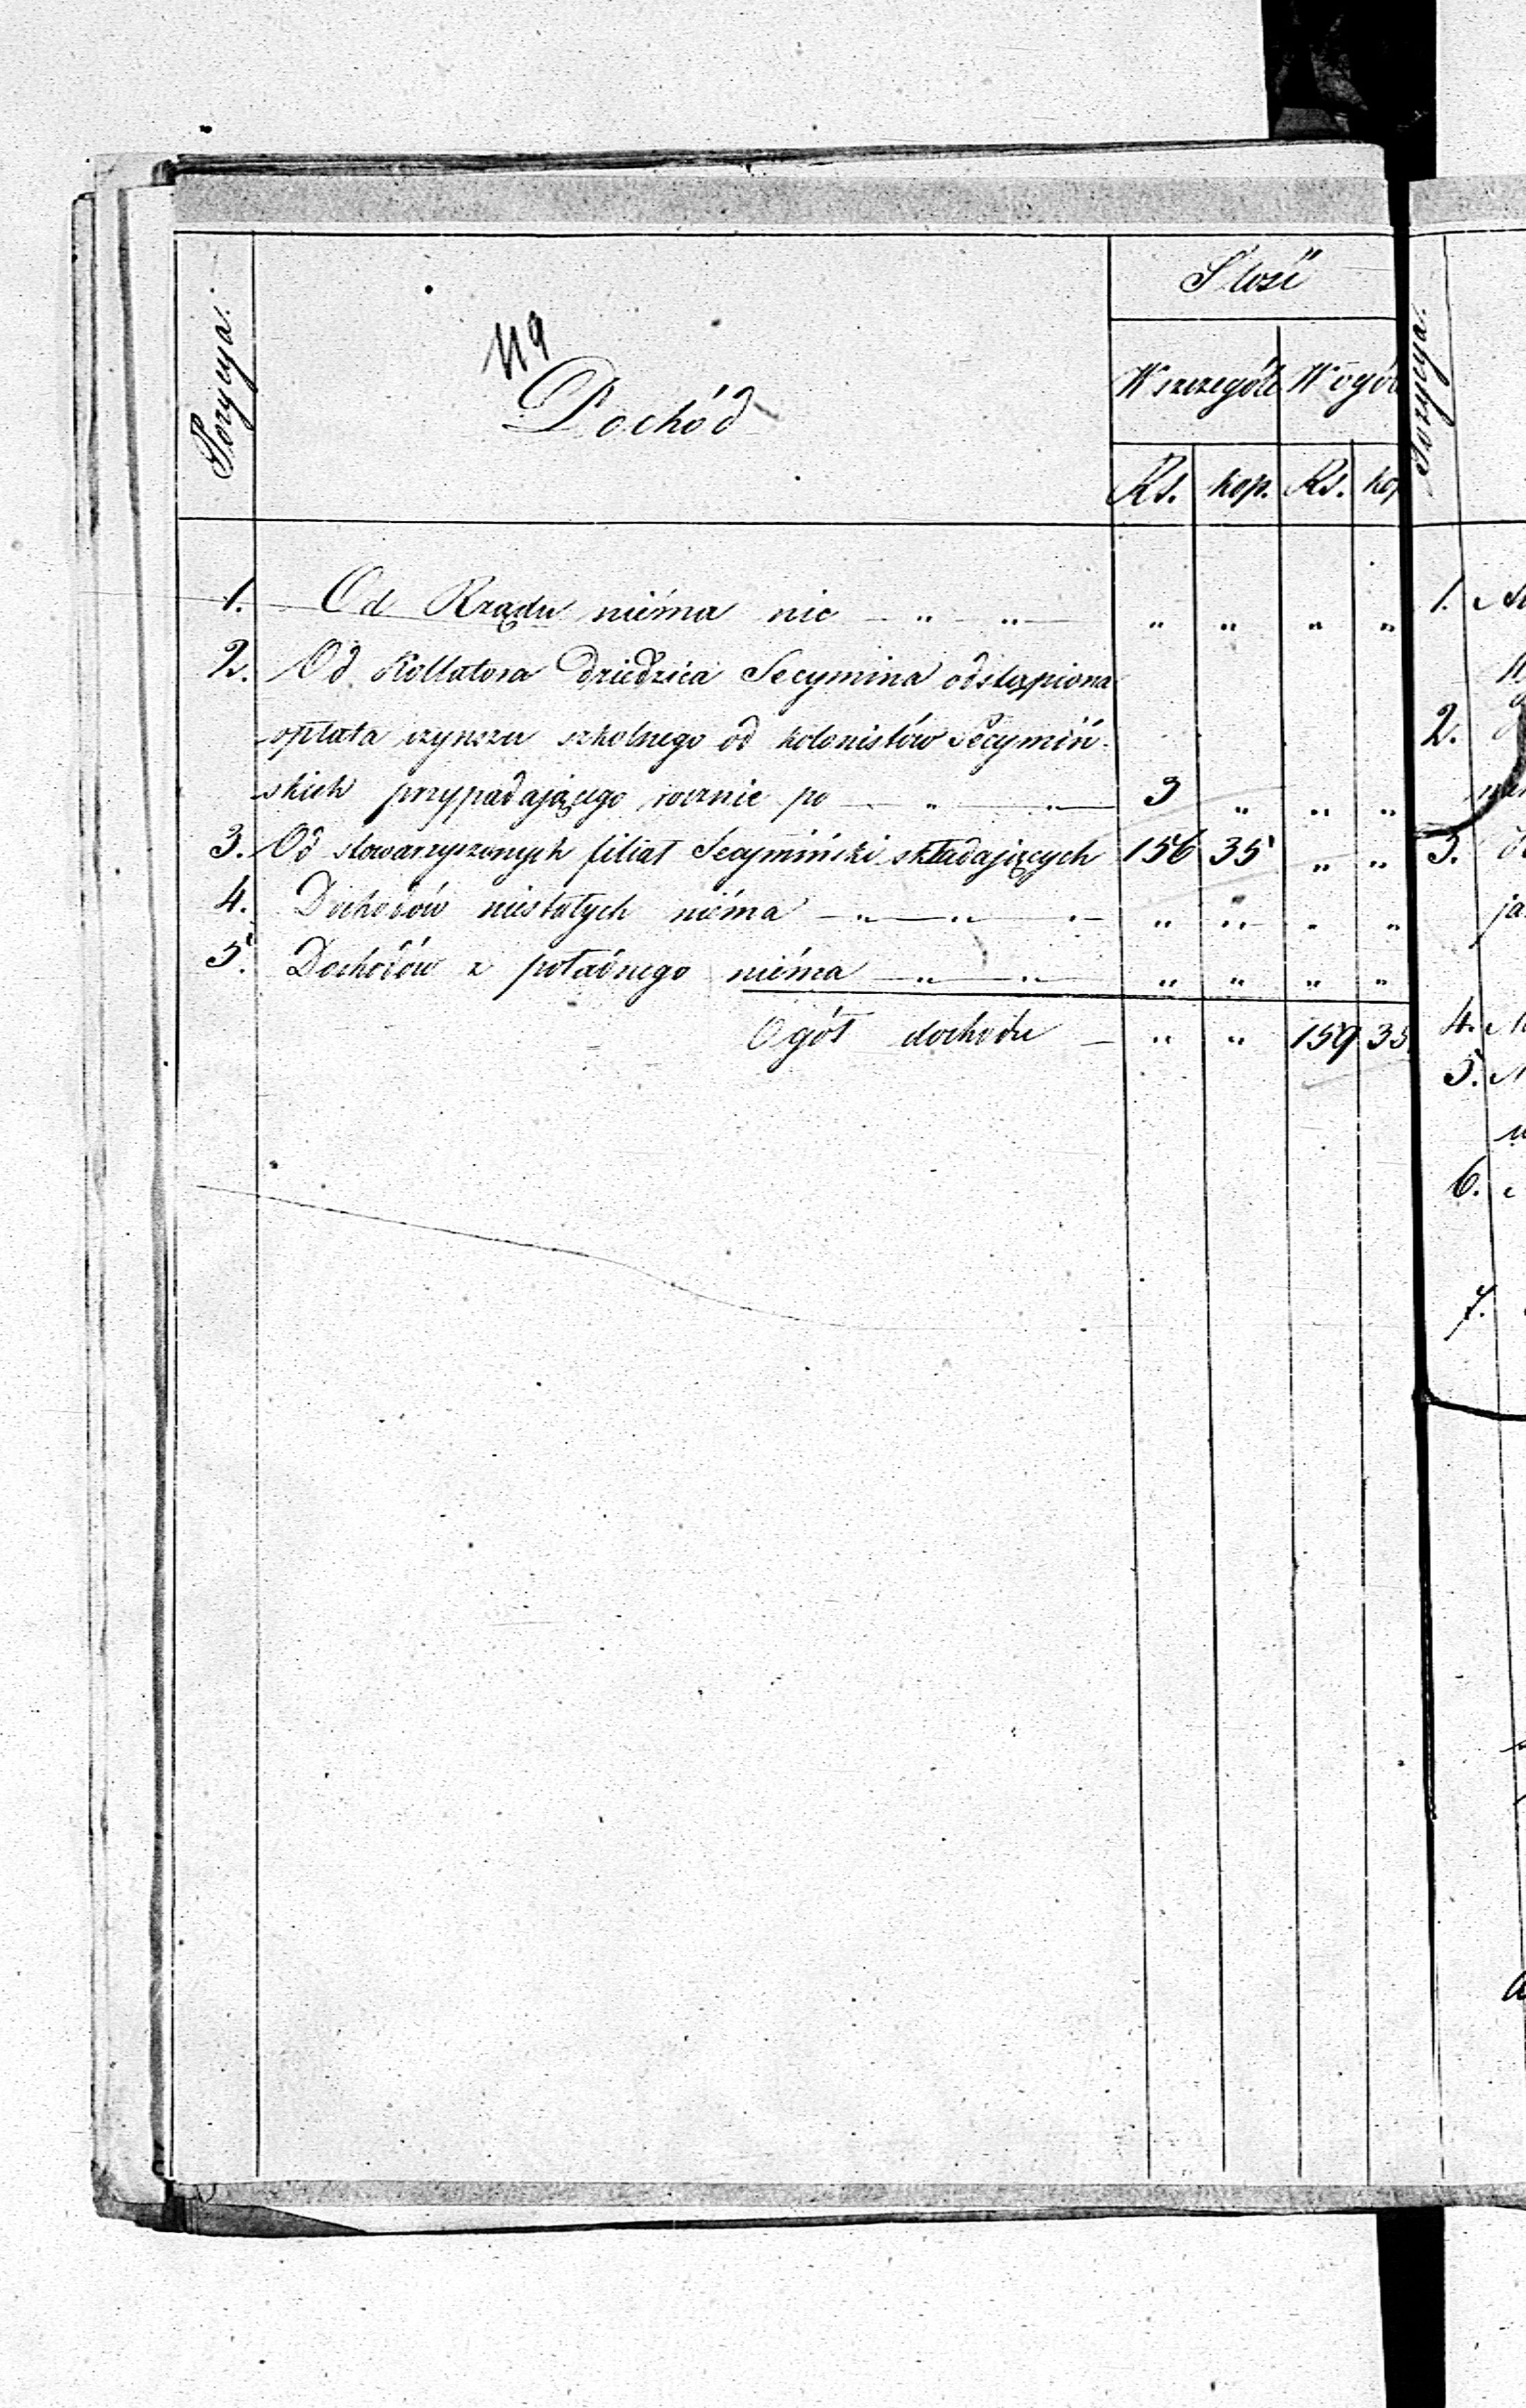 Pozycya.
119
Dochód
Ilość
W szczególe W ogól
Rs. kop. Rs. kop
1. Od Rządu niéma nic — " — " — " " " "
2. Od Kollatora Dziedzica Secymina odstąpiona
opłata czynszu szkolnego od kolonistów Secymiń-
skich przypadającego rocznie po — " — " — 3 " " "
3. Od stowarzyszonych filiał Secymiński składających 156 35 " "
4. Dochodów niestałych niéma — " — " — " — " " " "
5. Dochodów z pokładnego niéma — " — " — " " " "
Ogół dochodu — " " 159 35
Pozycya.
1.
2.
3.
ja
4.
5.
6.
7.